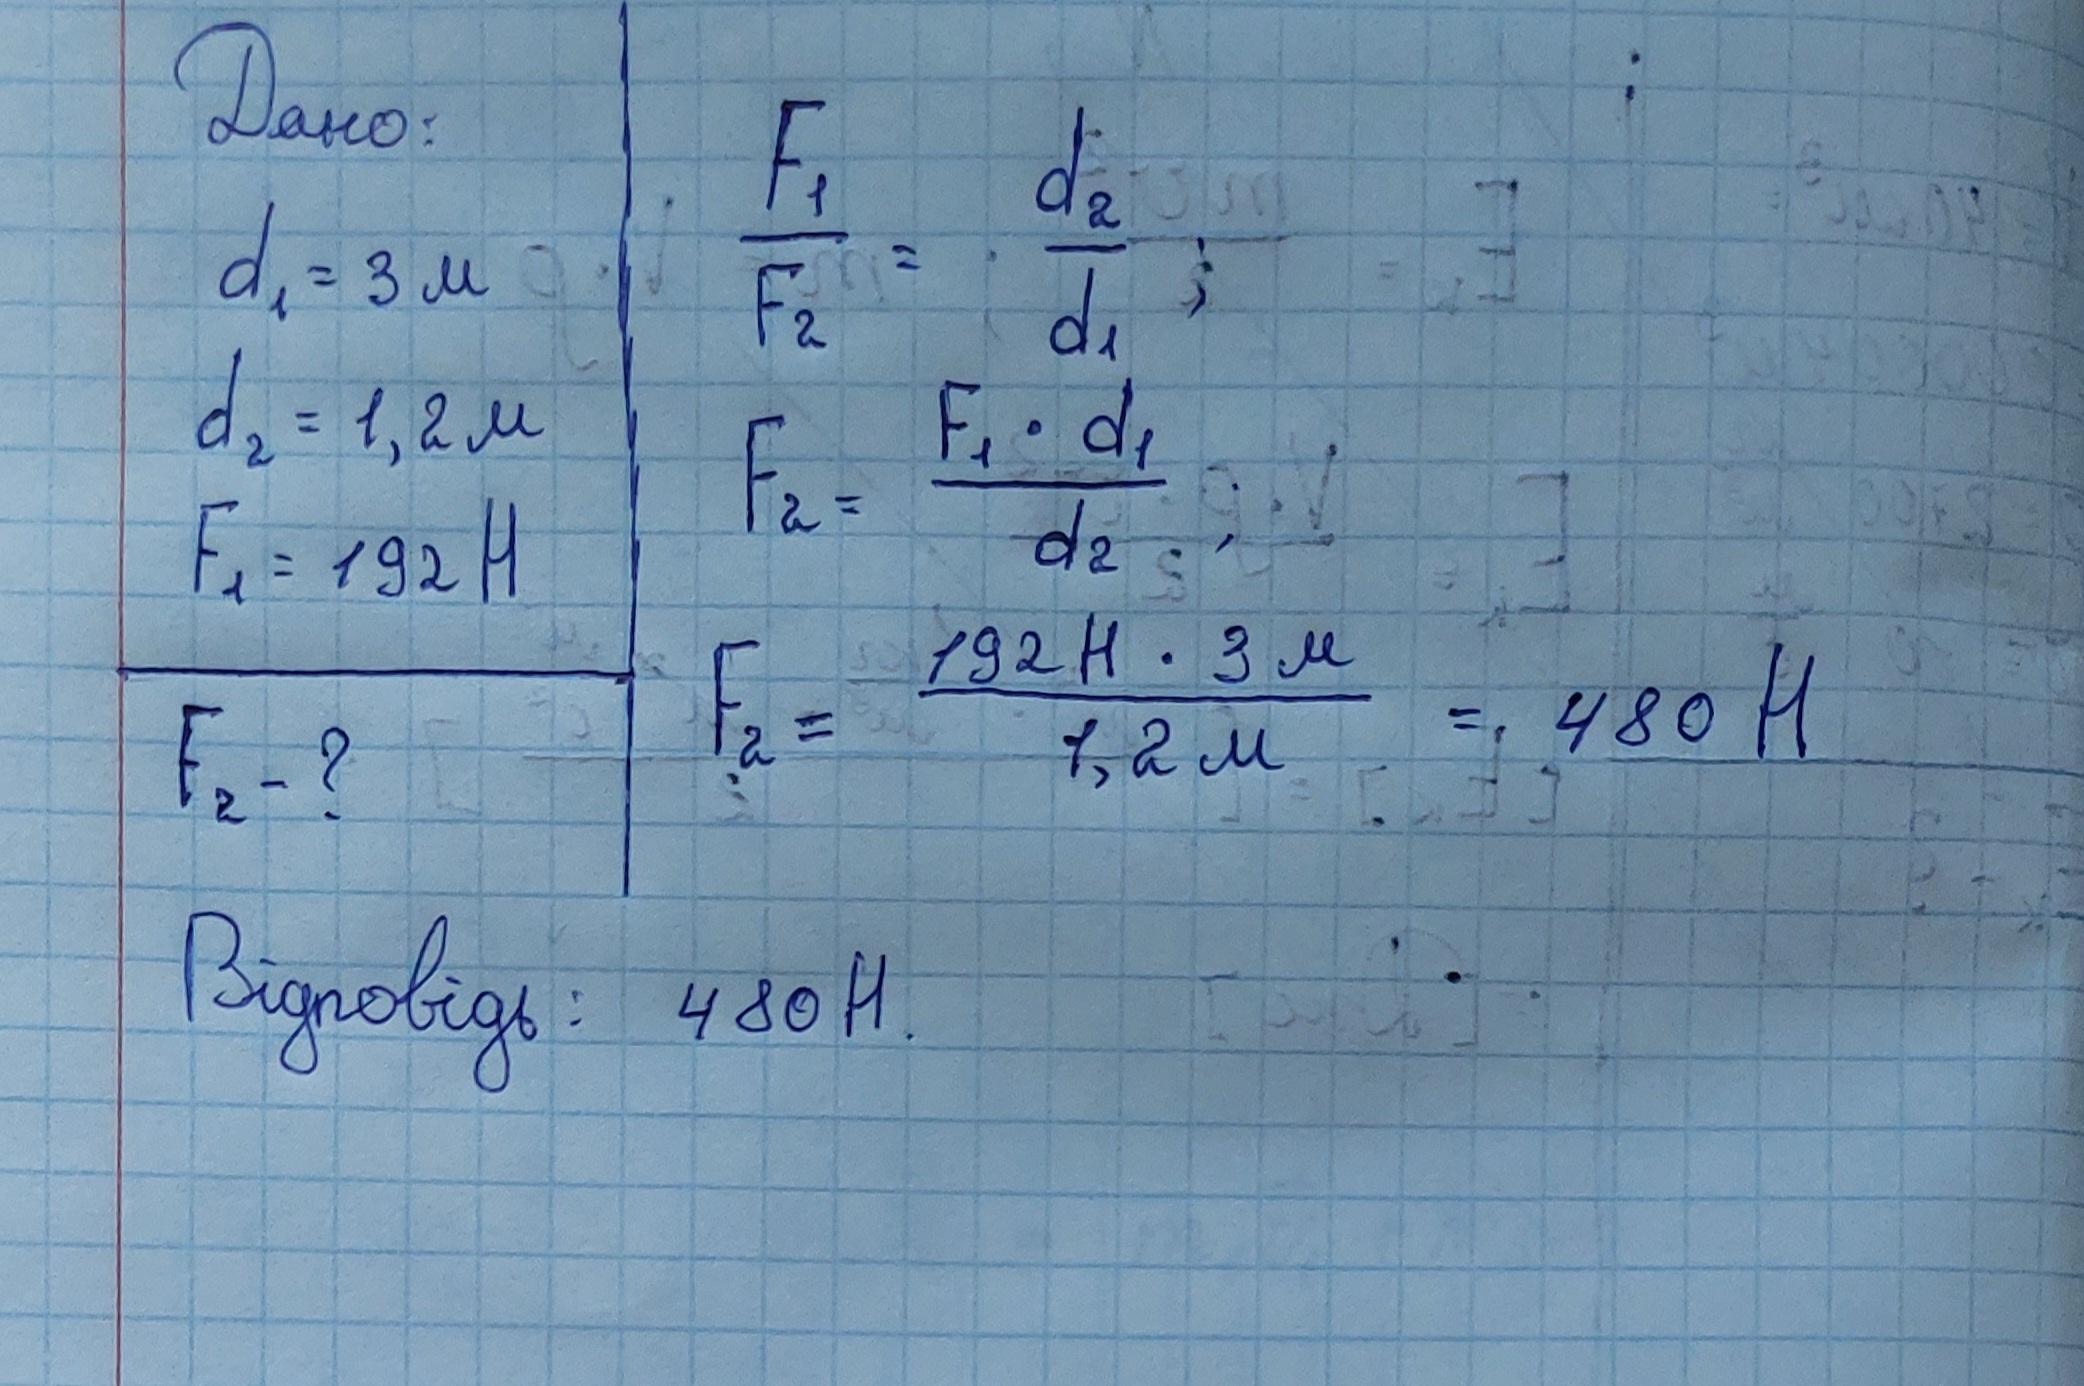 Дано:
d₁ = 3 м
d₂ = 1,2 м
F₁ = 192 Н
F₂ - ?
F₁/F₂ = d₂/d₁;
F₂ = F₁ · d₁/d₂;
F₂ = 192 Н · 3 м/1,2 м = 480 Н
Відповідь: 480 Н.